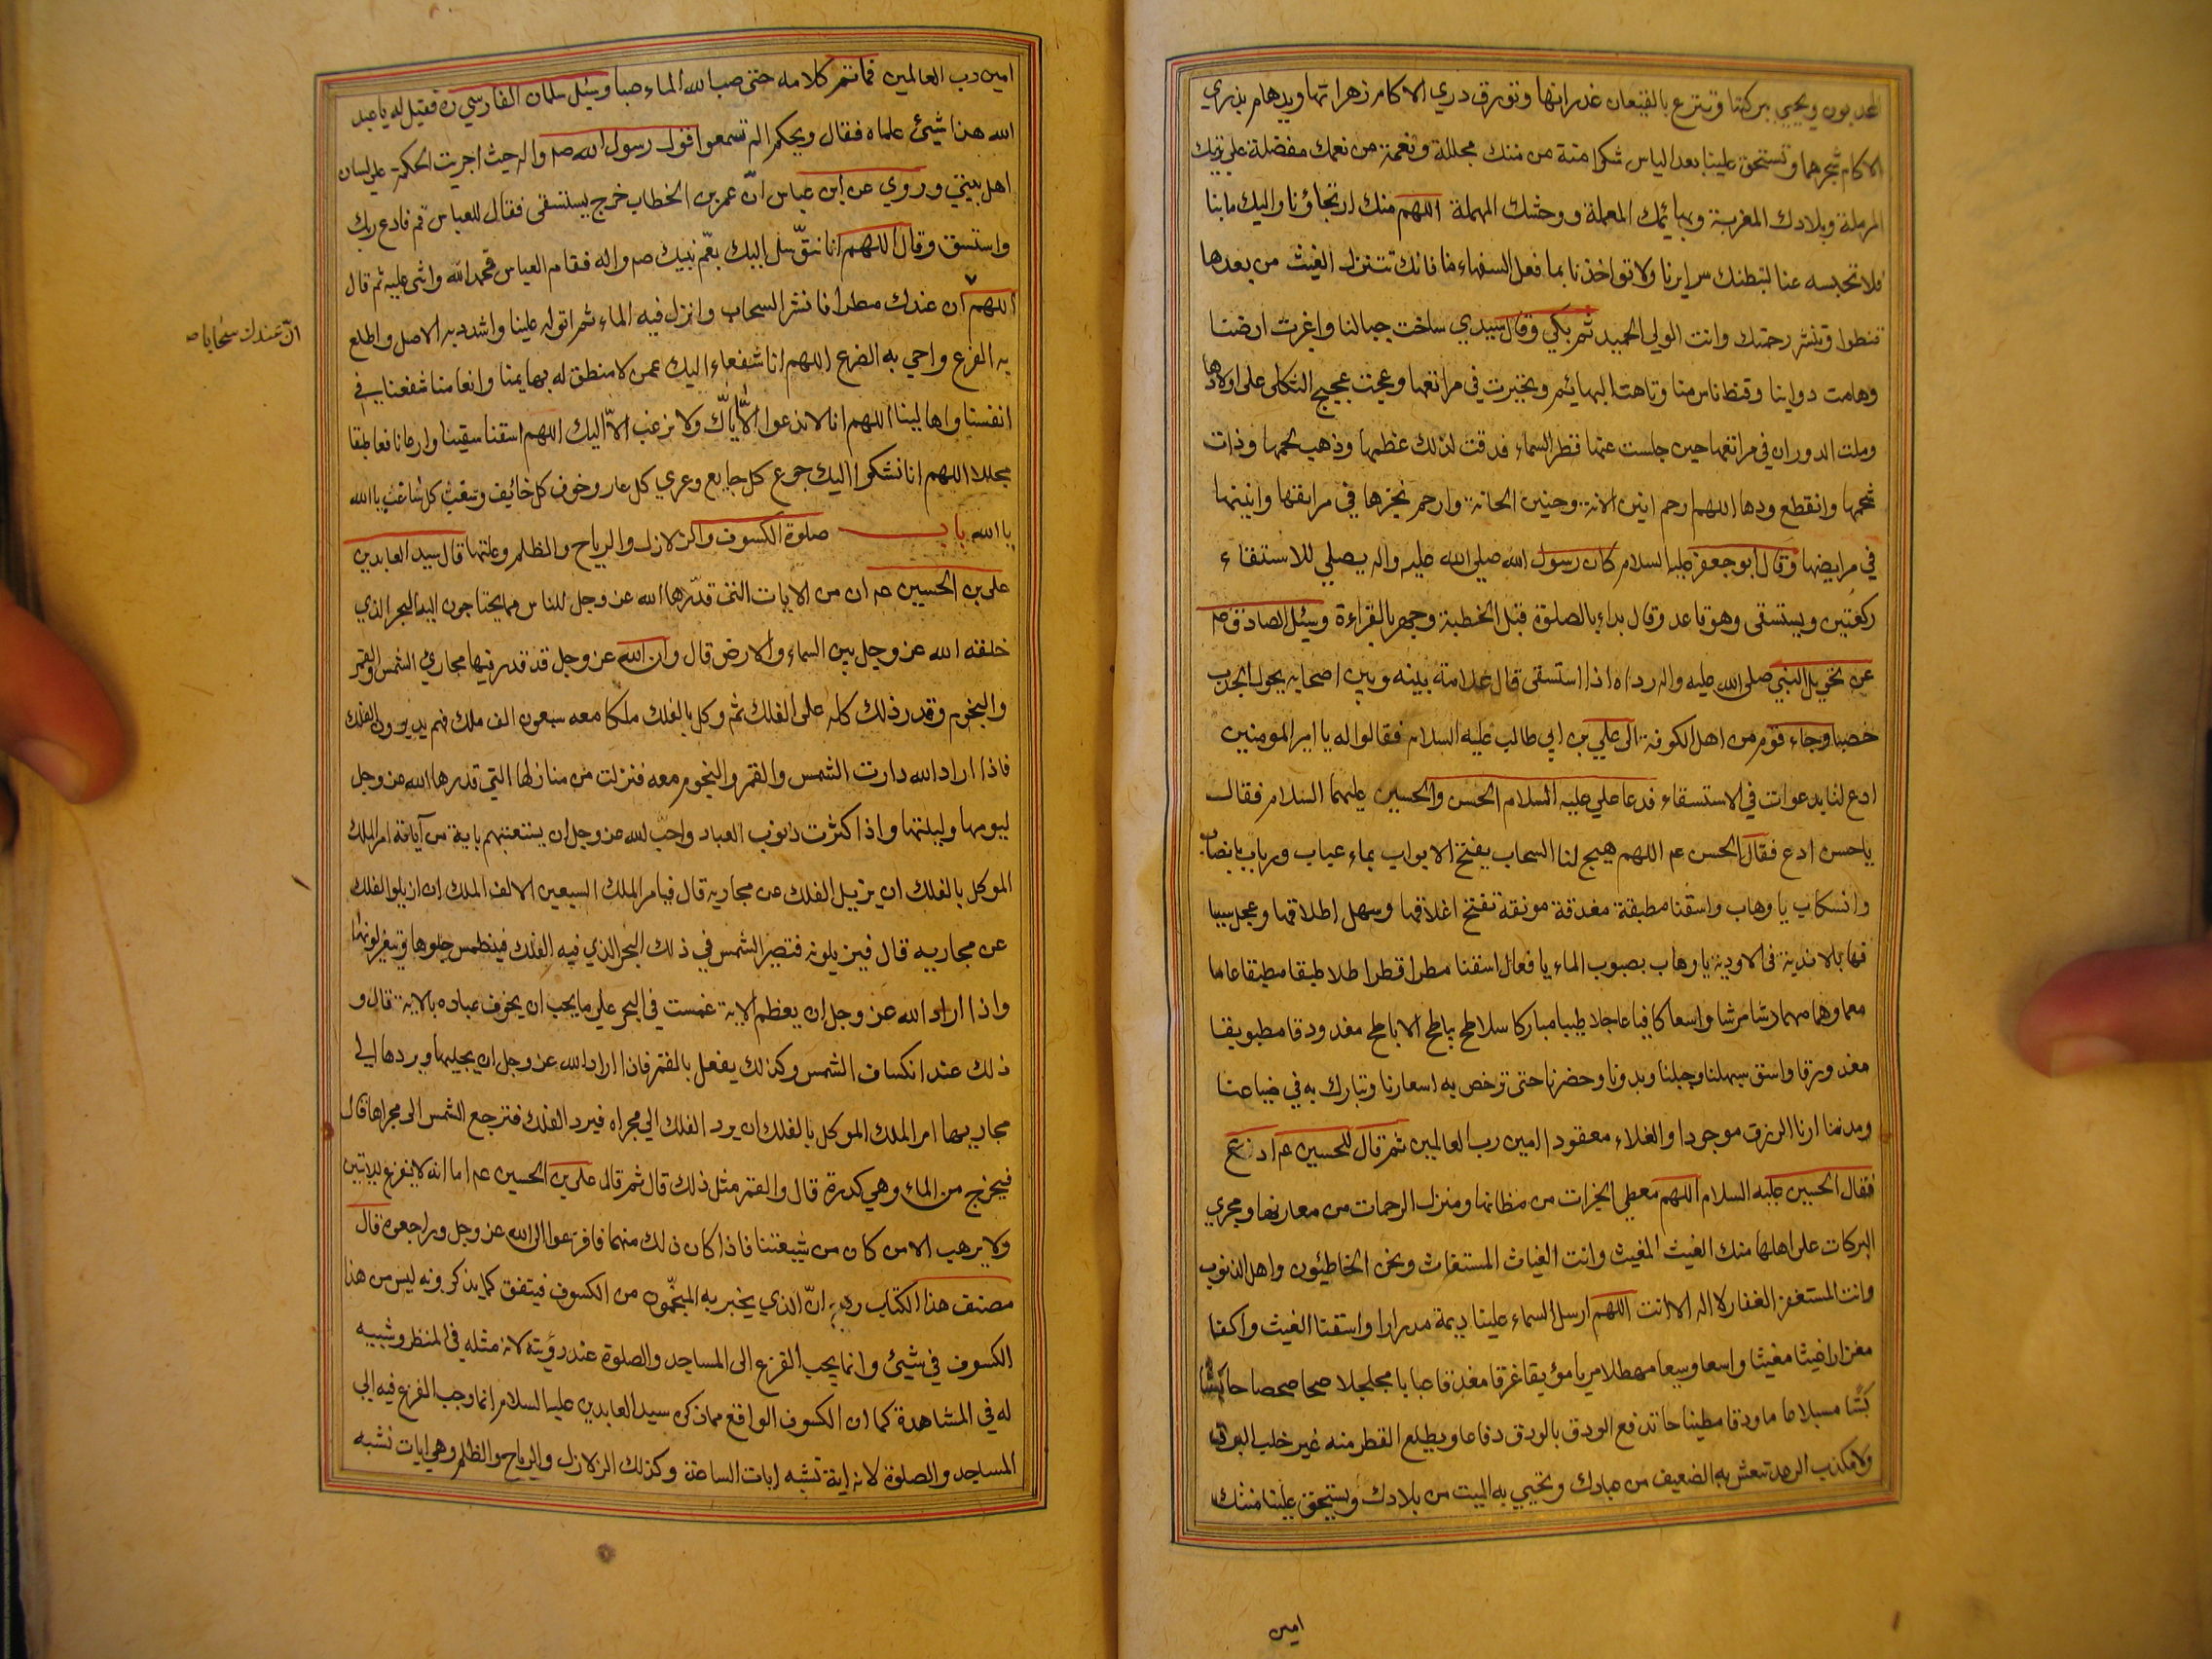 المجدبون ويحيى ببركتنا وتترع بالقيعان غدرانها وتورق ذري الاكام زهراتها ويدهام بذري
الاكام شجرها وتستحق علينا بعد الياس شكرا منة من مننك مجللة ونعمة من نعمك مفضلة على بريتك
المرملة وبلادك المغربة وبهائمك المعملة ووحشك المهملة اللهم منك ارتجاؤنا واليك مابنا
فلا تحبسه عنا لتبطنك سرايرنا ولا تواخذنا بما فعل السفهاء منا فانك تنزل الغيث من بعد ما
قنطوا وتنشر رحمتك وانت الولي الحميد ثم بكى وقال سيدي ساخت جبالنا واغبرت ارضنا
وهامت دوابنا وقنط ناس منا وتاهت البهائم وتحيرت في مراتعها وعجت عجيج الثكلى على اولادها
وملت الدوران في مراتعها حين حبست عنها قطر السماء فدقت لذلك عظمها وذهب لحمها وذات
شحمها وانقطع ودها اللهم رحم انين الانة وحنين الحانة وارحم تحيرها في مراتعها وانينها
في مرابضها وقال ابو جعفر عليه السلام كان رسول الله صلى الله عليه واله يصلي للاستسقاء
ركعتين ويستسقى وهو قاعد وقال بداء بالصلوة قبل الخطبة وجهر بالقراءة وسئل الصادق عم
عن تحويل النبي صلى الله عليه واله رداه اذا استسقى قال علامة بينه وبين اصحابه يحول الجدب
خصبا وجاء قوم من اهل الكوفة الى علي بن ابي طالب عليه السلام فقالوا له يا امير المومنين
ادع لنا بدعوات في الاستسقاء فدعا علي عليه السلام الحسن والحسين عليهما السلام فقال
يا حسن ادع فقال الحسن عم اللهم هيج لنا السحاب بفتح الابواب بماء عباب ورباب بانصباب
وانسكاب يا وهاب واسقنا مطبقة مغدقة مونقة تفتح اغلاقها وسهل اطلاقها وعجل سيا
قها بالاندية في الاودية يا وهاب بصوب الماء يا فعال اسقنا مطرا قطرا طلا طبقا مطبقا عاما
معما وهما مهما رشا مرشا واسعا كافيا عاجلا طيبا مباركا سلاطح بلاطح الاباطح مغدودقا مطبوبقا
مغرورقا واسق سهلنا وجبلنا وبدونا وحضرنا حتى ترخص به اسعارنا وتبارك به في ضياعنا
ومدننا ارنا الرزق موجودا والغلاء مفقودا امين رب العالمين ثم قال للحسين عم ادع
فقال الحسين عليه السلام اللهم معطي الخيرات من مظانها ومنزل الرحمات من معادنها ومجري
البركات على اهلها منك الغيث المغيث وانت الغياث المستغاث ونحن الخاطئون واهل الذنوب
وانت المستغفر الغفار لا اله الا انت اللهم ارسل السماء علينا ديمة مدرارا واسقنا الغيث واكفا
مغزارا غيثا مغيثا واسعا وسيعا مهطلا مريا مؤيقا غرقا مغدقا عبابا مجلجلا صحا صحصاحا
مسبلا عاما ودقا مطينا حا تدفع الودق بالودق دفاعا ويطلع القطر منه غير خلب البرق
ولا مكذب الرعد تنعش به الضعيف من عبادك وتحيي به الميت من بلادك وتستحق علينا مننك
امين
امين رب العالمين فما تم كلامه حتى صب الله الماء صبا وسئل سلمان الفارسي ره فقيل له يا عبد
الله هذا شيئ علماه فقال ويحكم الم تسمعوا قول رسول الله صم واله حيث اجريت الحكمة على لسان
اهل بيتي وروي عن ابن عباس انّ عمر بن الخطاب خرج يستسقى فقال للعباس قم فادع ربك
واستسق وقال اللهم انا نتوسّل اليك بعّم نبيك صم واله فقام العباس فحمد الله واثنى عليه ثم قال
اللهم ان عندك مطرا فانشر السحاب وانزل فيه الماء ثم انزله علينا واشدد به الاصل واطلع
انّ عندك سحابا صح
به الفرع واحي به الضرع اللهم انا شفعاء اليك عمن لا منطق له بهايمنا وانعامنا شفعنا في
انفسنا واهالينا اللهم انا لا ندعوا الّا ايّاك ولا نرغب الاّ اليك اللهم اسقنا سقيا وادعا نافعا طبقا
مجللا اللهم انا نشكوا اليك جوع كل جايع وعري كل عار وخوف كل خائف وسغب كل ساغب يا الله
يا الله باب صلوة الكسوف والزلازل والرياح والظلم وعلتها قال سيد العابدين
على بن الحسين عم ان من الايات التي قدّرها الله عز وجل للناس مما يحتاجون اليه البحر الذي
خلقه الله عز وجل بين السماء والارض قال وان الله عز وجل قد قدر فيها مجاري الشمس والقمر
والنجوم وقدر ذلك كله على الفلك ثم وكل بالفلك ملكا معه سبعون الف ملك فهم يديرون الفلك
فاذا اراد الله دارت الشمس والقمر والنجوم معه فنزلت من منازلها التي قدرها الله عز وجل
ليومها وليلتها واذا كثرت ذنوب العباد واحب الله عز وجل ان يستعتبهم باية من آياته امر الملك
الموكل بالفلك ان يزيل الفلك عن مجاريه قال فيامر الملك السبعين الالف الملك ان ازيلوا الفلك
عن مجاريه قال فيزيلونه فتصير الشمس في ذلك البحر الذي فيه الفلك فينطمس ضوها ويتغير لونها
واذا اراد الله عز وجل ان يعظم الاية غمست في البحر على ما يحب ان يخوف عباده بالاية قال و
ذلك عند انكساف الشمس وكذلك يفعل بالقمر فاذا اراد الله عز وجل ان يجليها ويردها الى
مجاريها امر الملك الموكل بالفلك ان يرد الفلك الى مجراه فيرد الفلك فترجع الشمس الى مجراها قال
فيخرج من الماء وهي كدرة قال والقمر مثل ذلك قال ثم قال على بن الحسين عم اما انه لا يفزع للايتين
ولا يرهب الا من كان من شيعتنا فاذا كان ذلك منهما فافزعوا الى الله عز وجل وراجعوه قال
مصنف هذا الكتاب ره انّ الذي يخبر به المنجّمون من الكسوف فيتفق كما يذكرونه ليس من هذا
الكسوف في شيئ وانما يجب الفزع الى المساجد والصلوة عند رؤيته لانه مثله في المنظر وشبيه
له في المشاهدة كما ان الكسوف الواقع مما ذكر سيد العابدين عليه السلام انما وجب الفزع فيه الى
المساجد والصلوة لانه اية تشبه ايات الساعة وكذلك الزلازل والرياح والظلم وهي ايات تشبه